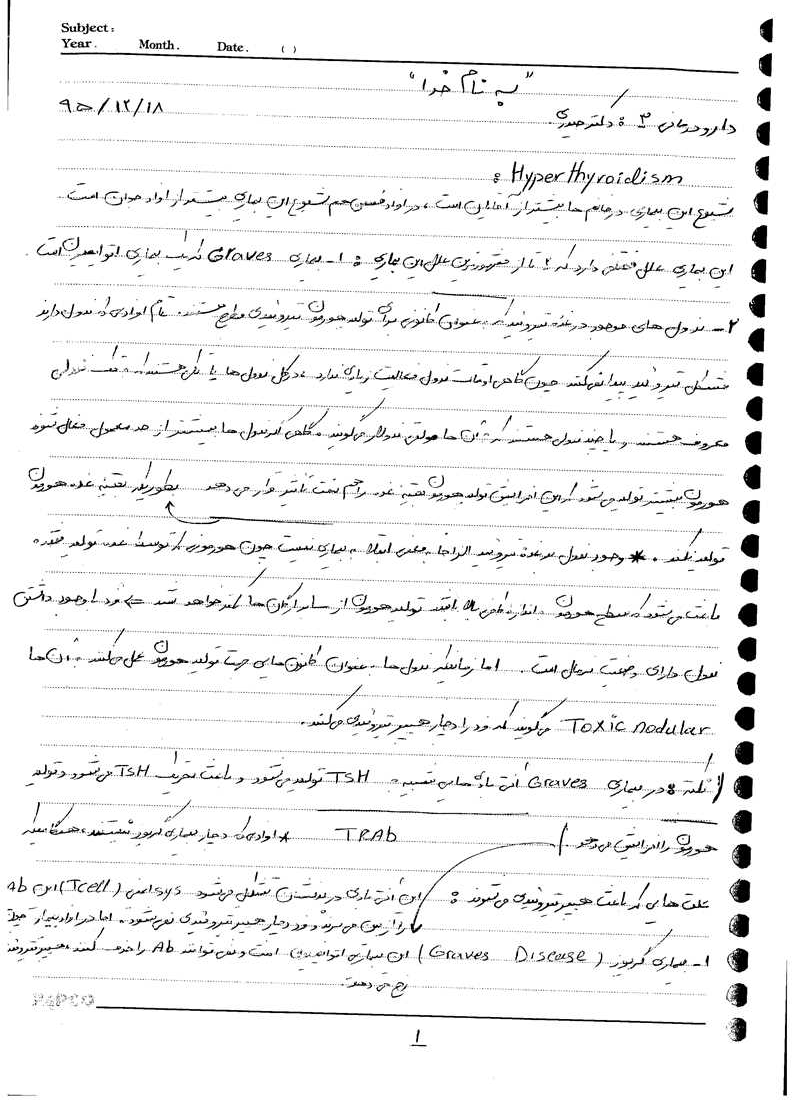 Subject:
Year. Month. Date. ( )
"به نام خدا"
دارودرمانی ۳ : دکتر حیدری ۹۵/۱۲/۱۸
Hyperthyroidism :
شیوع این بیماری در خانم ها بیشتر از آقایان است ، در افراد مسن هم شیوع این بیماری بیشتر از افراد جوان است
این بیماری علل مختلفی دارد که ۲ تا از مهم‌ترین علل این بیماری : ۱- بیماری Graves که یک بیماری اتوایمیون است
۲- ندول های موجود در غده تیروئید که به عنوان کانونی برای تولید هورمون تیروئیدی مطرح هستند. تمام افرادی که ندول دارند
مشکل تیروئید پیدا نمی‌کنند چون گاهی اوقات ندول فعالیت زیادی ندارد ، در کل ندول ها یا تکی هستند که به تک ندولی
معروف هستند و یا چند ندول هستند که به آن ها مولتی ندولار می‌گویند ، گاهی اگر ندول ها بیشتر از حد معمول فعال شوند
هورمون بیشتر تولید می‌شود که این افزایش تولید هورمون بقیه غده را هم تحت تأثیر قرار می دهد بطوریکه بقیه غده هورمون
تولید نکند . * وجود ندول در غده تیروئید الزاماً به معنی ابتلا به بیماری نیست چون هورمونی که توسط غده تولید
باعث می‌شود که سطح هورمون به اندازه کافی بالا باشد تولید هورمون از سایر ارگان ها کمتر خواهد شد ⇒ فرد با وجود داشتن
ندول دارای وضعیت نرمال است . اما زمانیکه ندول ها به عنوان کانون هایی جهت تولید هورمون عمل می‌کنند به آن ها
Toxic nodular می‌گویند که فرد را دچار هیپرتیروئیدی می‌کنند.
نکته : در بیماری Graves آنتی بادی هایی شبیه به TSH تولید می‌شود و باعث تحریک TSH می‌شود و تولید
هورمون را افزایش می دهد . TRAb * افرادی که دچار بیماری گریوز نیستند، هنگامیکه
علت هایی که باعث هیپرتیروئیدی می شوند : این آنتی بادی در بدنشان تشکیل می‌شود sys ایمنی (T cell) این Ab
را از بین می برند و فرد دچار هیپرتیروئیدی نمی‌شود . اما در افراد بیمار
۱- بیماری گریوز (Graves Disease) این بیماری اتوایمیون است و نمی توانند Ab را حذف کنند ، هیپرتیروئیدی
رخ می دهد.
PAPCO
۱